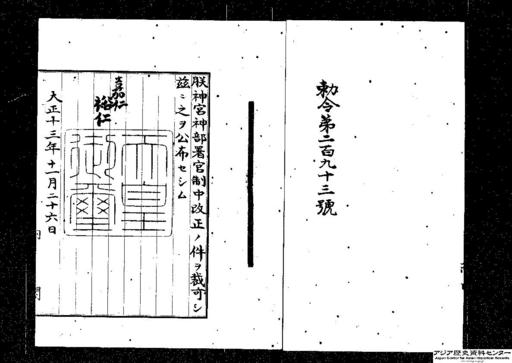 勅令第二百九十三號
朕神宮神部署官制中改正ノ件ヲ裁可シ
茲ニ之ヲ公布セシム
嘉仁
裕仁
天皇
御璽
大正十三年十一月二十六日
内閣
アジア歴史資料センター
Japan Center for Asian Historical Records